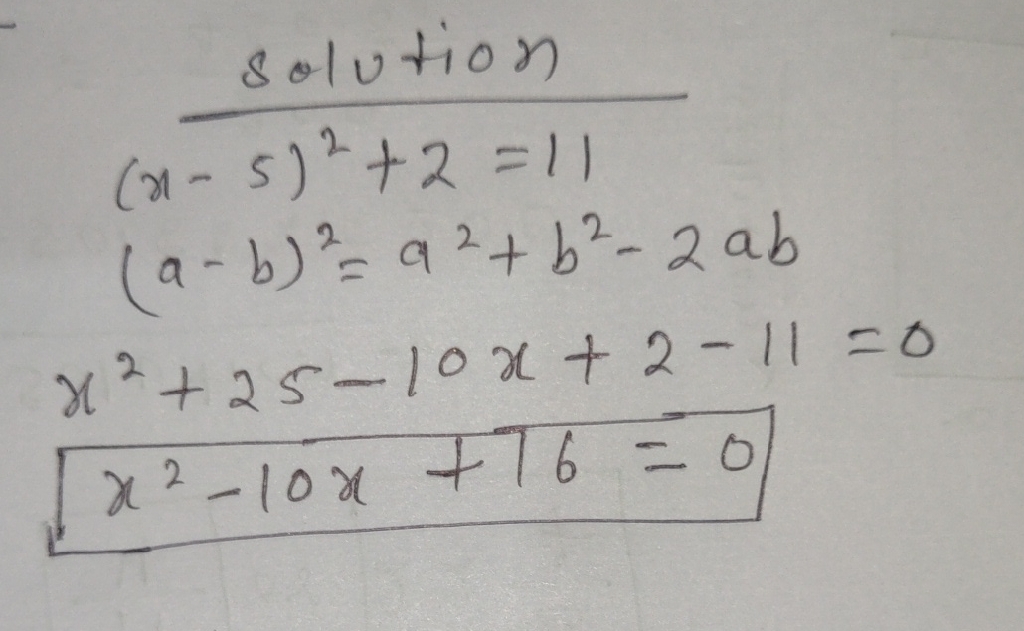 solution
(x-5)² + 2 = 11
(a-b)² = a² + b² - 2ab
x² + 25 - 10x + 2 - 11 = 0
x² - 10x + 16 = 0